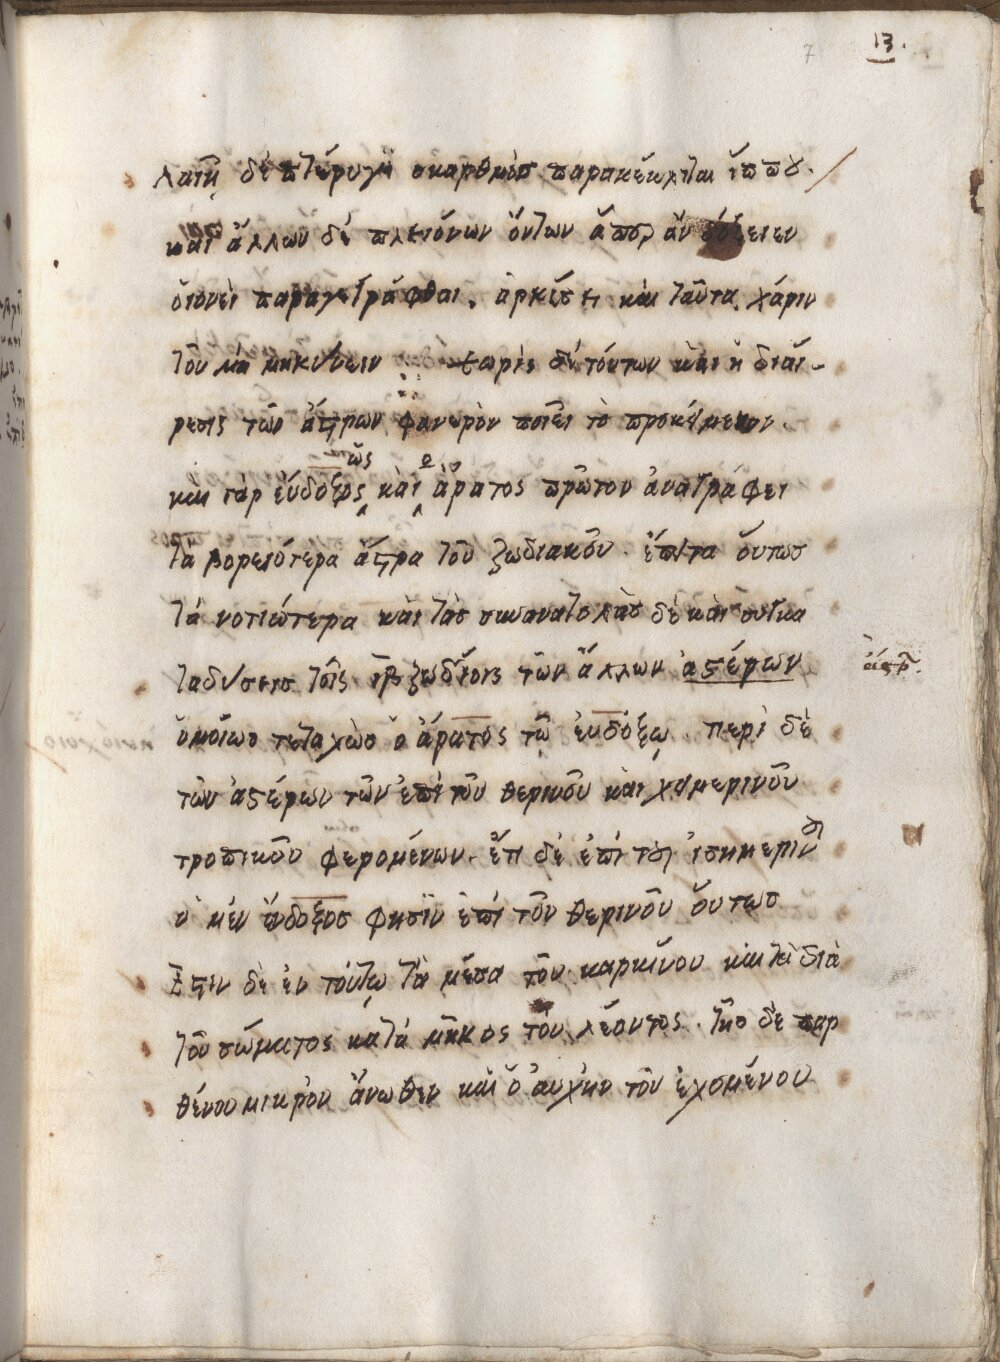 7 13.
λαιῆ δὲ πτέρυγι σκαρθμὸς παρακέκλιται ἵππου.
καὶ ἄλλων δὲ πλειόνων ὄντων ἅπερ ἂν δόξειεν
οἱονεὶ παραγεγράφθαι. ἀρκέσει καὶ ταῦτα χάριν
τοῦ μὴ μηκύνειν χωρὶς δὲ τούτων καὶ ἡ διαί-
ρεσις τῶν ἄστρων φανερὸν ποιεῖ τὸ προκείμενον.
καὶ γὰρ εὔδοξος ὡς καὶ ὁ ἄρατος πρῶτον ἀναγράφει
τὰ βορειότερα ἄστρα τοῦ ζωδιακοῦ. ἔπειτα οὕτως
τὰ νοτιώτερα καὶ τὰς συνανατολὰς δὲ καὶ συγκα
ταδύσεις τοῖς ιβ ζωδίοις τῶν ἄλλων ἀστέρων
ἄστρ.
ὁμοίως τεταχὼς ὁ ἄρατος τῷ εὐδόξῳ. περὶ δὲ
τῶν ἀστέρων τῶν ἐπὶ τοῦ θερινοῦ καὶ χειμερινοῦ
τροπικοῦ φερομένων. ἔτι δὲ ἐπὶ τοῦ ἰσημερινοῦ
ὁ μὲν εὔδοξος φησὶν ἐπὶ τοῦ θερινοῦ οὕτως
Ἔστιν δὲ ἐν τούτῳ τὰ μέσα τοῦ καρκίνου καὶ τὰ διὰ
τοῦ σώματος κατὰ μῆκος τοῦ λέοντος. τῆς δὲ παρ
θένου μικρὸν ἄνωθεν καὶ ὁ αὐχὴν τοῦ ἐχομένου